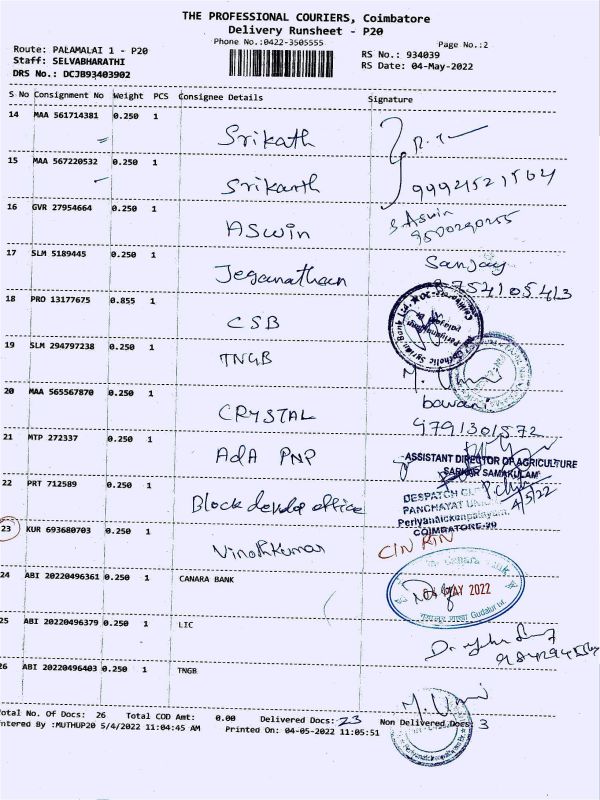 THE PROFESSIONAL COURIERS, Coimbatore
Delivery Runsheet - P20
Phone No.:0422-3505555
Page No.:2
Route: PALAMALAI 1 - P20
RS No.: 934039
Staff: SELVABHARATHI
RS Date: 04-May-2022
DRS No.: DCJB93403902
S No Consignment No Weight PCS Consignee Details Signature
14 MAA 561714381 0.250 1 Srikath
15 MAA 567220532 0.250 1 Srikanth
16 GVR 27954664 0.250 1 ASwin S.Aswin
17 SLM 5189445 0.250 1 Jeganathan Sanjay
8754105413
18 PRO 13177675 0.855 1 CSB
19 SLM 294797238 0.250 1 TNGB
20 MAA 565567870 0.250 1 CRYSTAL bawani
9791301572
21 MTP 272337 0.250 1 AdA PNP
ASSISTANT DIRECTOR OF AGRICULTURE
SARKAR SAMAKULAM
22 PRT 712589 0.250 1 Block devlop office
DESPATCH
PANCHAYAT
Periyanaickenpalayam,
COIMBATORE-20
4/5/22
23 KUR 693680703 0.250 1 Vinothkumar
24 ABI 20220496361 0.250 1 CANARA BANK
MAY 2022
25 ABI 20220496379 0.250 1 LIC
26 ABI 20220496403 0.250 1 TNGB
Total No. Of Docs: 26 Total COD Amt: 0.00 Delivered Docs: 23 Non Delivered Docs: 3
Entered By :MUTHUP20 5/4/2022 11:04:45 AM Printed On: 04-05-2022 11:05:51